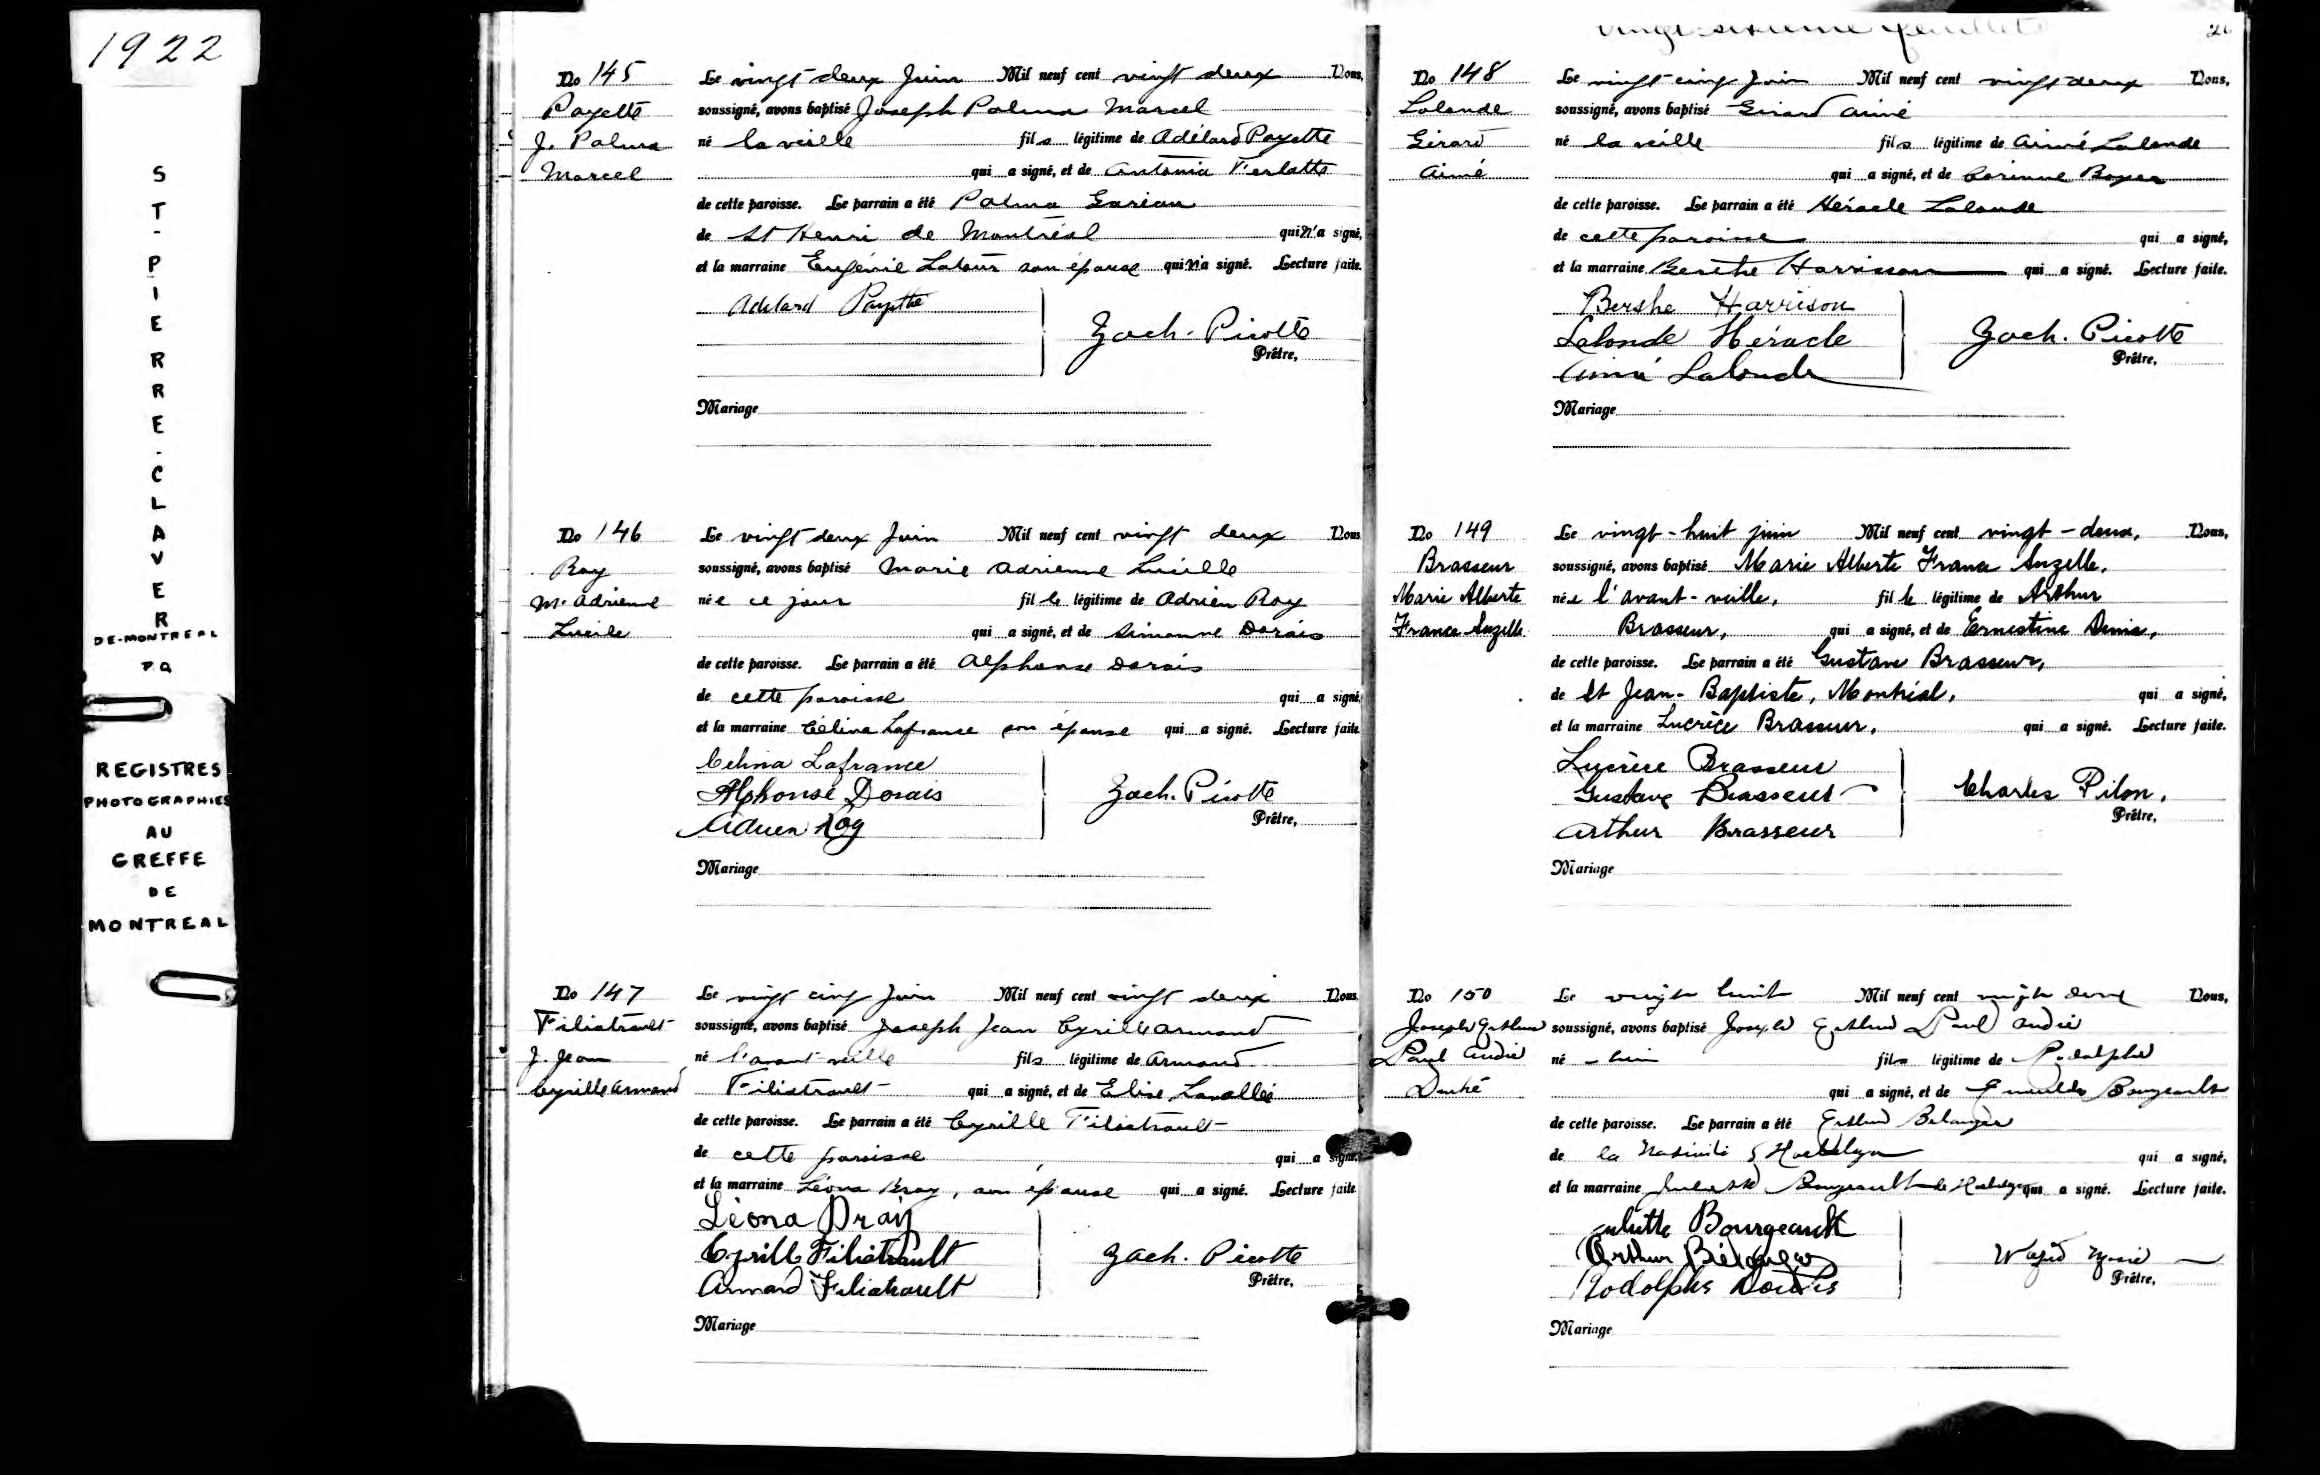 1922
ST-PIERRE-CLAVER
DE-MONTREAL
PQ
REGISTRES
PHOTOGRAPHIES
AU
GREFFE
DE
MONTREAL
No 145
Payette
J. Palma
Marcel
Le vingt deux Juin Mil neuf cent vingt deux Nous,
soussigné, avons baptisé Joseph Palma Marcel
né la veille fils légitime de Adélard Payette
qui a signé, et de Antonia Ferlatte
de cette paroisse. Le parrain a été Palma Garieau
de St Henri de Montréal qui n'a signé,
et la marraine Eugénie Latour son épouse qui n'a signé. Lecture faite.
Adelard Payette
Zach. Picotte
Prêtre,
Mariage
No 146
Roy
M. Adrienne
Lucile
Le vingt deux Juin Mil neuf cent vingt deux Nous
soussigné, avons baptisé Marie Adrienne Lucille
née ce jour fille légitime de Adrien Roy
qui a signé, et de Simonne Dorais
de cette paroisse. Le parrain a été Alphonse Dorais
de cette paroisse qui a signé
et la marraine Célina Lafrance son épouse qui a signé. Lecture faite
Celina Lafrance
Alphonse Dorais
Adrien Roy
Zach. Picotte
Prêtre,
Mariage
No 147
Filiatrault
J. Jean
Cyrille Armand
Le vingt cinq Juin Mil neuf cent vingt deux Nous
soussigné, avons baptisé Joseph Jean Cyrille Armand
né l'avant veille fils légitime de Armand
Filiatrault qui a signé, et de Elise Lavallée
de cette paroisse. Le parrain a été Cyrille Filiatrault
de cette paroisse qui a signé,
et la marraine Léona Bray, son épouse qui a signé. Lecture faite
Léona Bray
Cyrille Filiatrault
Armand Filiatrault
Zach. Picotte
Prêtre,
Mariage
vingt-sixième feuillet
26
No 148
Lalonde
Gérard
Aimé
Le vingt-cinq Juin Mil neuf cent vingt deux Nous,
soussigné, avons baptisé Gérard Aimé
né la veille fils légitime de Aimé Lalonde
qui a signé, et de Corinne Boyer
de cette paroisse. Le parrain a été Héracle Lalonde
de cette paroisse qui a signé,
et la marraine Berthe Harrisson qui a signé. Lecture faite.
Berthe Harrison
Lalonde Héracle
Aimé Lalonde
Zach. Picotte
Prêtre,
Mariage
No 149
Brasseur
Marie Alberte
France Suzelle
Le vingt-huit juin Mil neuf cent vingt-deux, Nous,
soussigné, avons baptisé Marie Alberte France Suzelle,
née l'avant-veille, fille légitime de Arthur
Brasseur, qui a signé, et de Ernestine Denis,
de cette paroisse. Le parrain a été Gustave Brasseur,
de St Jean-Baptiste, Montréal, qui a signé,
et la marraine Lucrèce Brasseur, qui a signé. Lecture faite.
Lucrèce Brasseur
Gustave Brasseur
Arthur Brasseur
Charles Pilon,
Prêtre,
Mariage
No 150
Joseph Arthur
Paul André
Le vingt huit Mil neuf cent vingt deux Nous,
soussigné, avons baptisé Joseph Arthur Paul André
né hier fils légitime de Rodolphe
qui a signé, et de Bourgeault
de cette paroisse. Le parrain a été Arthur Belanger
de la Nativité qui a signé,
et la marraine Juliette Bourgeault qui a signé. Lecture faite.
Juliette Bourgeault
Arthur Bélanger
Rodolphe
Prêtre,
Mariage